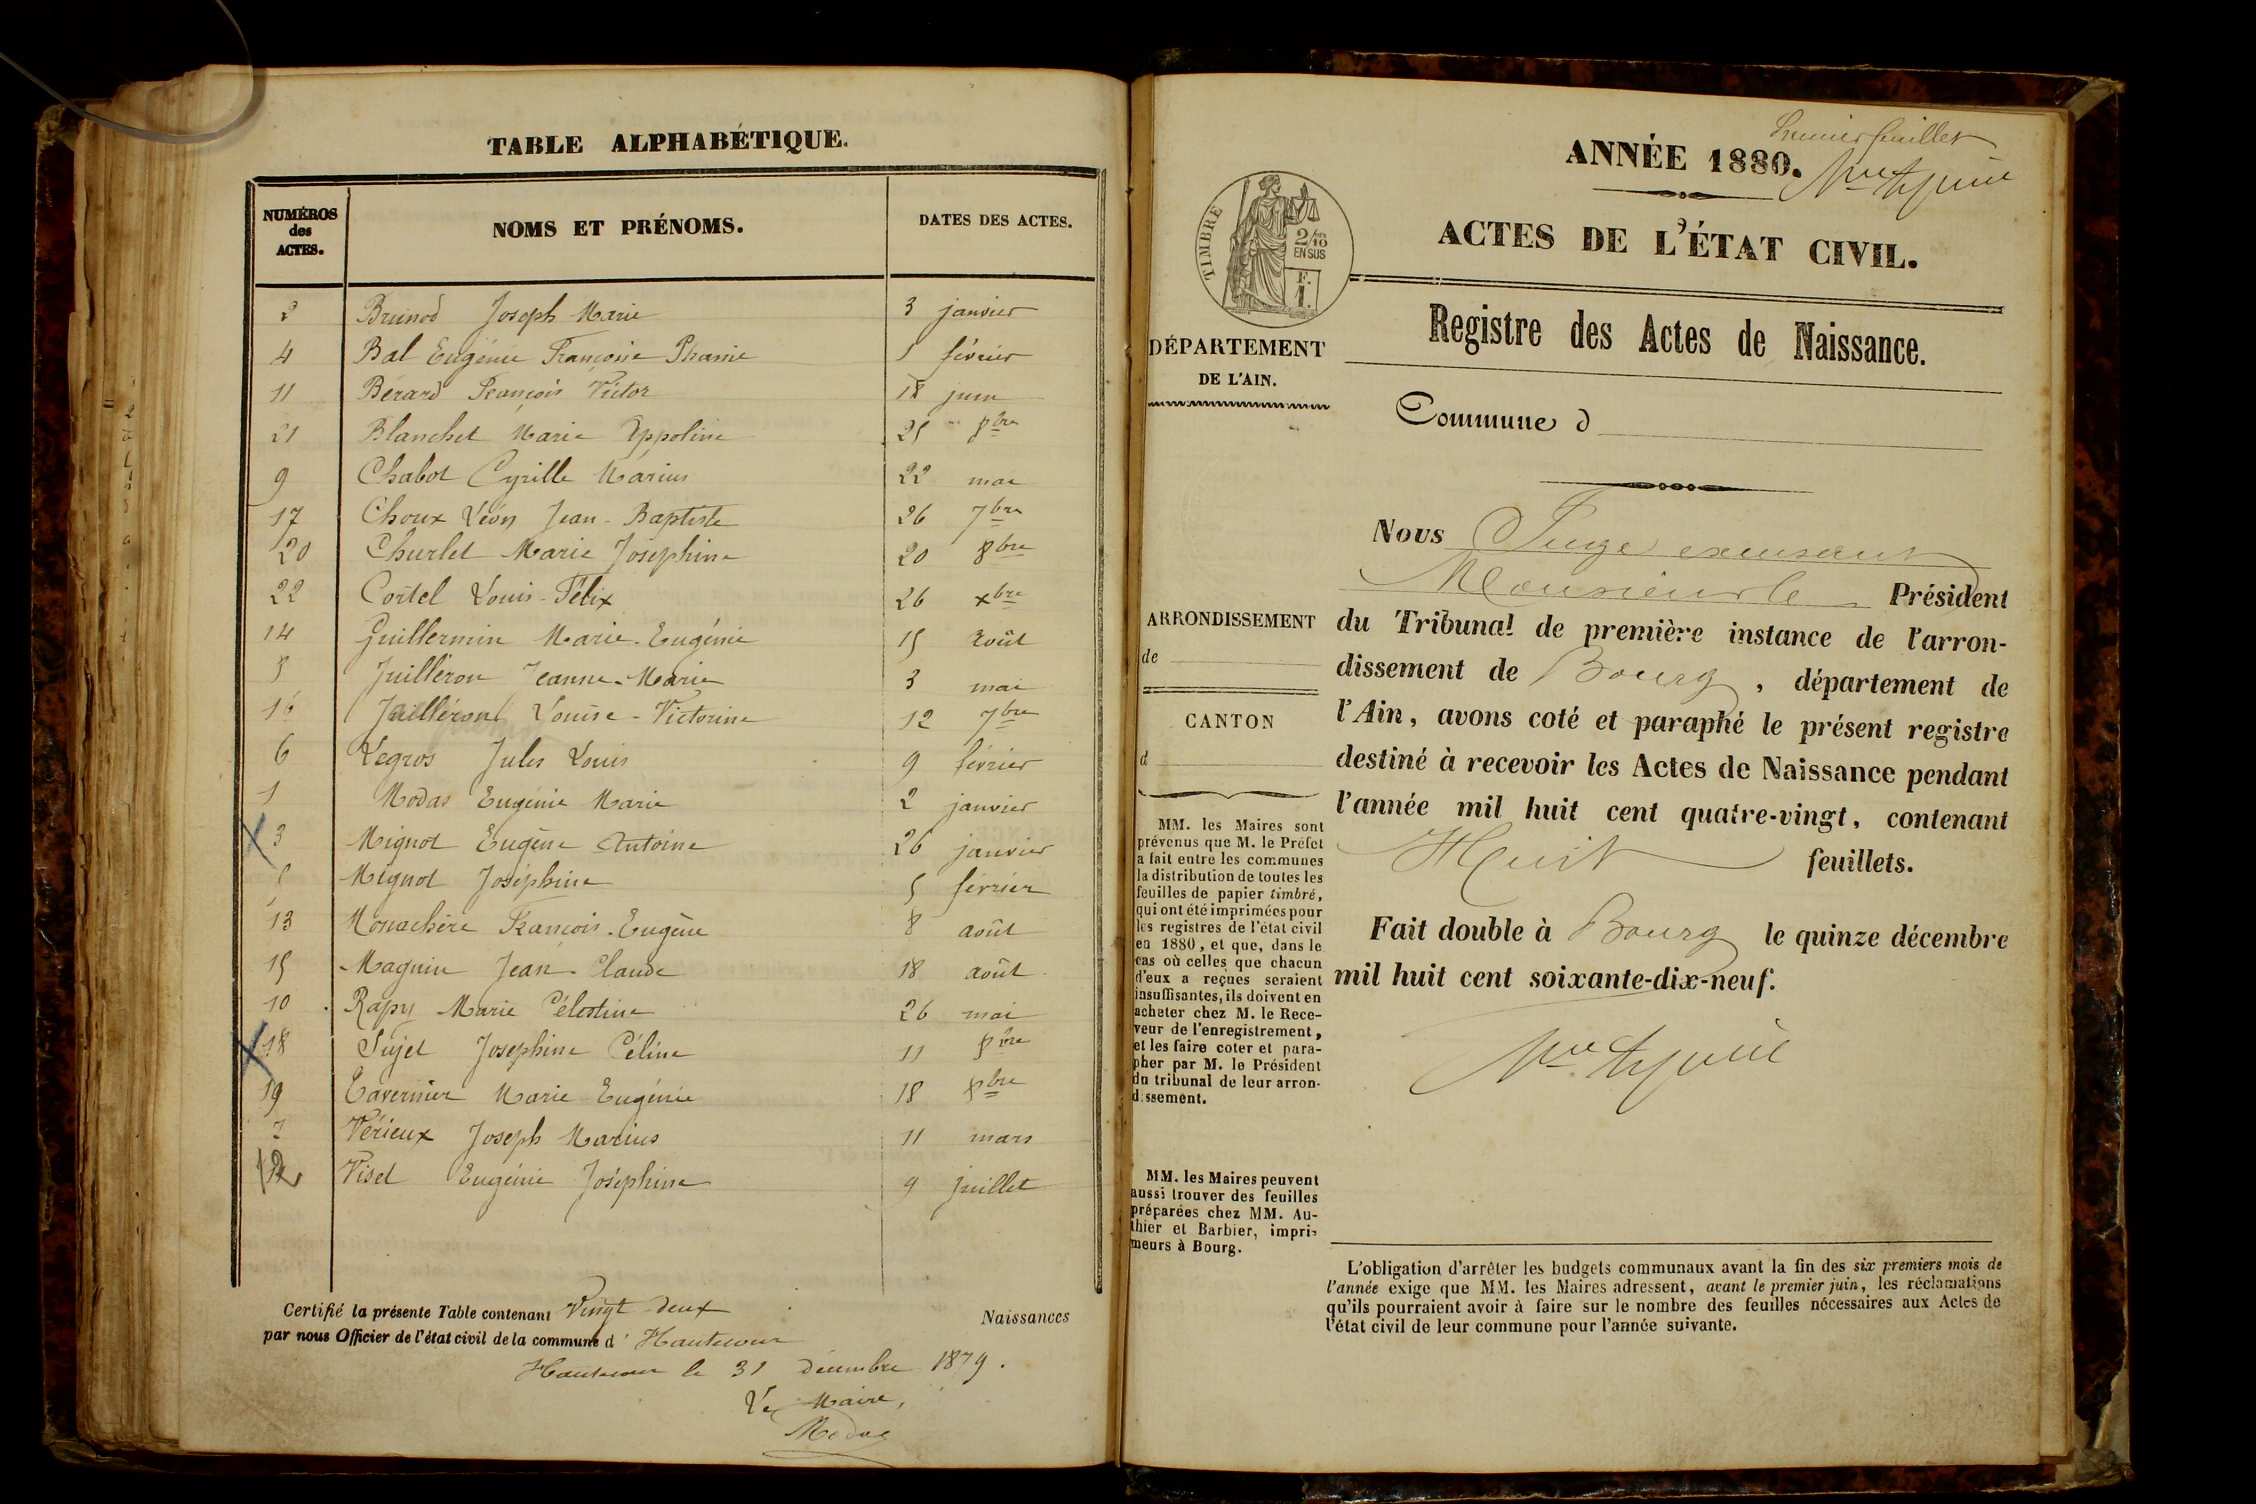 TABLE ALPHABÉTIQUE.
NUMÉROS des ACTES.
NOMS ET PRÉNOMS.
DATES DES ACTES.
2 Brunod Joseph Marie 3 janvier
4 Bal Eugénie Françoise 5 février
11 Bérard François Victor 18 juin
21 Blanchet Marie Yppoline 25 8bre
9 Chabot Cyrille Marius 22 mai
17 Choux Léon Jean-Baptiste 26 7bre
20 Churlet Marie Josephine 20 8bre
22 Cortel Louis-Félix 26 xbre
14 Guillermin Marie-Eugénie 15 août
8 Juilléron Jeanne-Marie 3 mai
16 Juilléron Louise-Victorine 12 7bre
6 Legros Jules Louis 9 février
1 Modas Eugénie Marie 2 janvier
3 Mignot Eugène Antoine 26 janvier
5 Mignot Joséphine 5 février
13 Monachère François-Eugène 8 août
15 Maguin Jean-Claude 18 août
10 Rapy Marie Célestine 26 mai
18 Sujet Josephine Céline 11 8bre
19 Tavernier Marie Eugénie 18 8bre
7 Vérieux Joseph Marius 11 mars
12 Viset Eugénie Joséphine 9 juillet
Certifié la présente Table contenant Vingt-deux Naissances
par nous Officier de l'état civil de la commune d'Hautecour
Hautecour le 31 décembre 1879.
Le Maire,
Modas
Premier feuillet
ANNÉE 1880.
ACTES DE L'ÉTAT CIVIL.
TIMBRE
2/10
EN SUS
F.
1.
Registre des Actes de Naissance.
DÉPARTEMENT
DE L'AIN.
Commune d
Nous Juge excusant
Monsieur le Président
du Tribunal de première instance de l'arron-
dissement de Bourg, département de
l'Ain, avons coté et paraphé le présent registre
destiné à recevoir les Actes de Naissance pendant
l'année mil huit cent quatre-vingt, contenant
Huit feuillets.
Fait double à Bourg le quinze décembre
mil huit cent soixante-dix-neuf.
ARRONDISSEMENT
de
CANTON
d
MM. les Maires sont
prévenus que M. le Préfet
a fait entre les communes
la distribution de toutes les
feuilles de papier timbré,
qui ont été imprimées pour
les registres de l'état civil
en 1880, et que, dans le
cas où celles que chacun
d'eux a reçues seraient
insuffisantes, ils doivent en
acheter chez M. le Rece-
veur de l'enregistrement,
et les faire coter et para-
pher par M. le Président
du tribunal de leur arron-
dissement.
MM. les Maires peuvent
aussi trouver des feuilles
préparées chez MM. Au-
thier et Barbier, impri-
meurs à Bourg.
L'obligation d'arrêter les budgets communaux avant la fin des six premiers mois de
l'année exige que MM. les Maires adressent, avant le premier juin, les réclamations
qu'ils pourraient avoir à faire sur le nombre des feuilles nécessaires aux Actes de
l'état civil de leur commune pour l'année suivante.